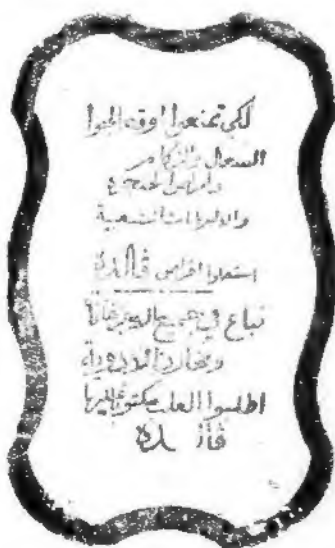 لكي تمنعوا اوقفوا
السعال والزكام
وامراض الحنجرة
والالتهابات الشعبية
استعملوا اقراص ڤالدة
تباع في جميع الاجزخانات
ومخازن الادوية
اطلبوا العلب مكتوب عليها
ڤالدة